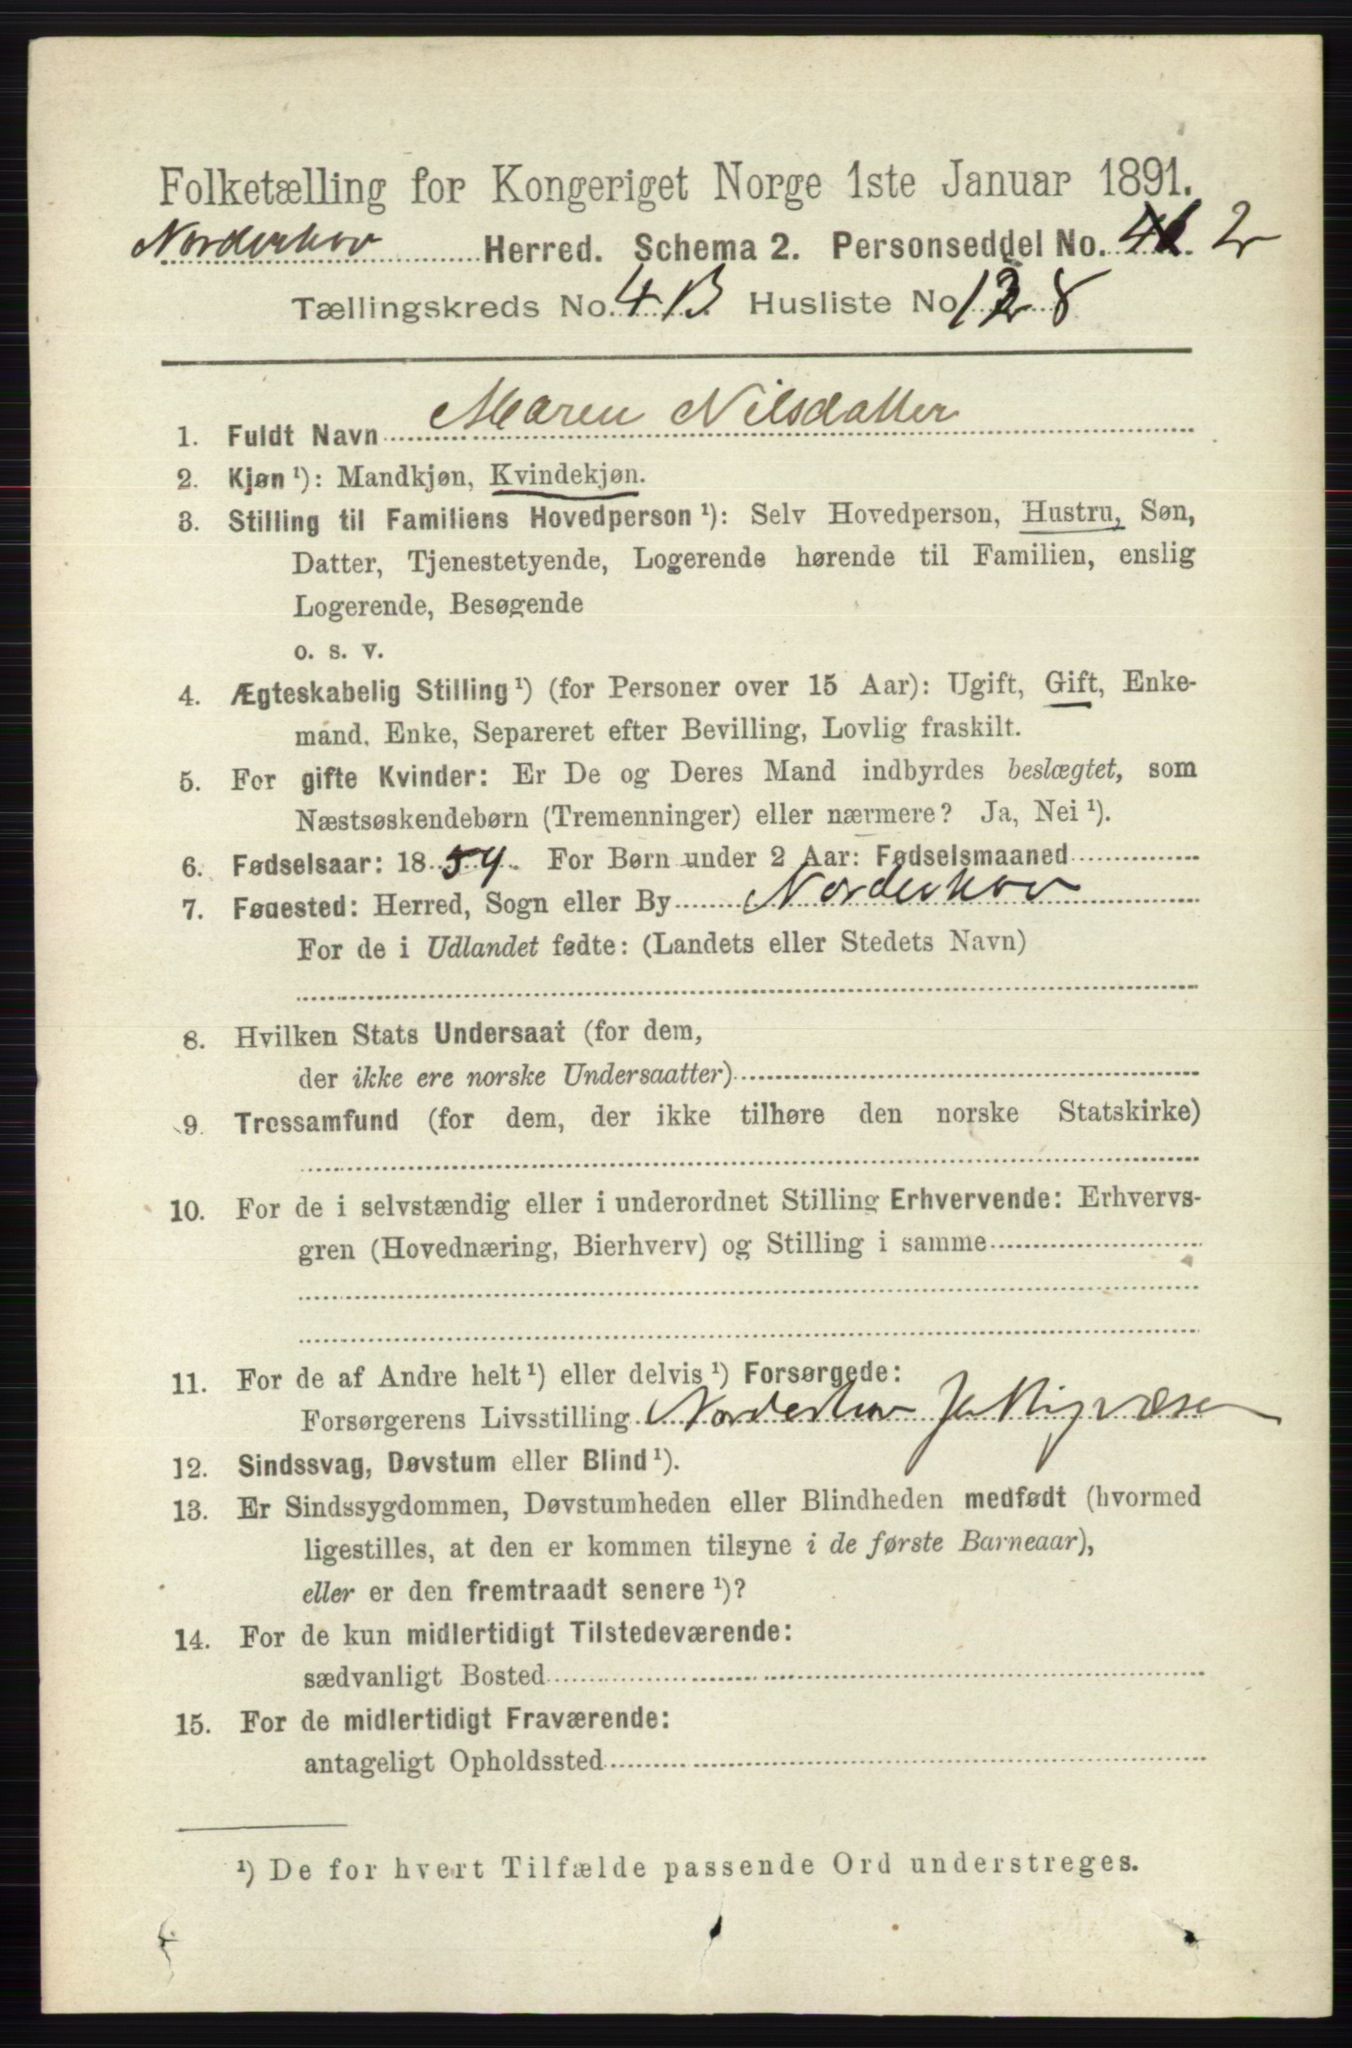 Folketælling for Kongeriget Norge 1ste Januar 1891.
Norderhov Herred. Schema 2. Personseddel No. 2
Tællingskreds No. 4 B Husliste No 128
1. Fuldt Navn Maren Nilsdatter
2. Kjøn ¹): Mandkjøn, Kvindekjøn.
3. Stilling til Familiens Hovedperson ¹): Selv Hovedperson, Hustru, Søn,
Datter, Tjenestetyende, Logerende hørende til Familien, enslig
Logerende, Besøgende
o. s. v.
4. Ægteskabelig Stilling ¹) (for Personer over 15 Aar): Ugift, Gift, Enke-
mand, Enke, Separeret efter Bevilling, Lovlig fraskilt.
5. For gifte Kvinder: Er De og Deres Mand indbyrdes beslægtet, som
Næstsøskendebørn (Tremenninger) eller nærmere? Ja, Nei ¹).
6. Fødselsaar: 1854. For Børn under 2 Aar: Fødselsmaaned
7. Fødested: Herred, Sogn eller By Norderhov
For de i Udlandet fødte: (Landets eller Stedets Navn)
8. Hvilken Stats Undersaat (for dem,
der ikke ere norske Undersaatter)
9. Trossamfund (for dem, der ikke tilhøre den norske Statskirke)
10. For de i selvstændig eller i underordnet Stilling Erhvervende: Erhvervs-
gren (Hovednæring, Bierhverv) og Stilling i samme
11. For de af Andre helt ¹) eller delvis ¹) Forsørgede:
Forsørgerens Livsstilling Norderhov Fattigvæsen
12. Sindssvag, Døvstum eller Blind ¹).
13. Er Sindssygdommen, Døvstumheden eller Blindheden medfødt (hvormed
ligestilles, at den er kommen tilsyne i de første Barneaar),
eller er den fremtraadt senere ¹)?
14. For de kun midlertidigt Tilstedeværende:
sædvanligt Bosted
15. For de midlertidigt Fraværende:
antageligt Opholdssted
¹) De for hvert Tilfælde passende Ord understreges.